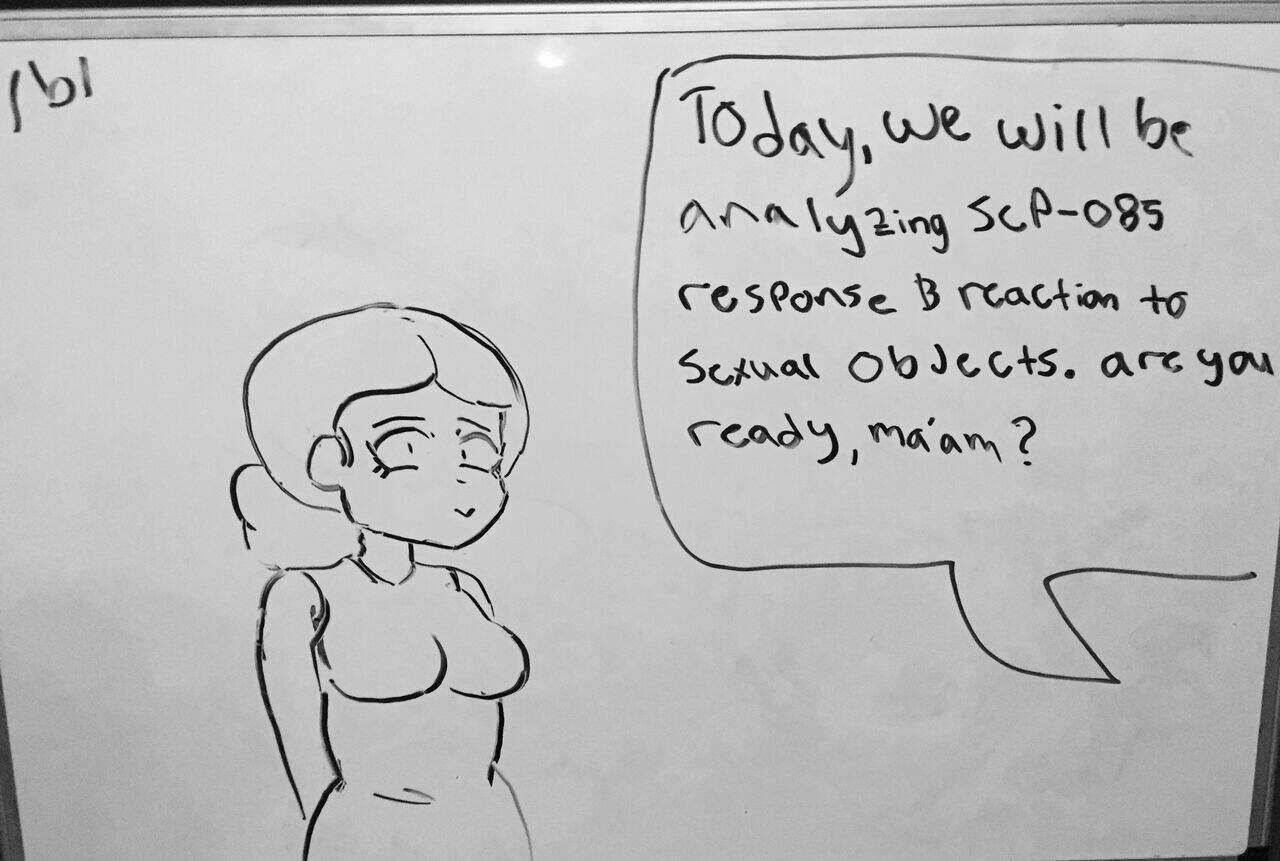 /b/
Today, we will be
analyzing SCP-085
response & reaction to
sexual objects. are you
ready, ma'am?